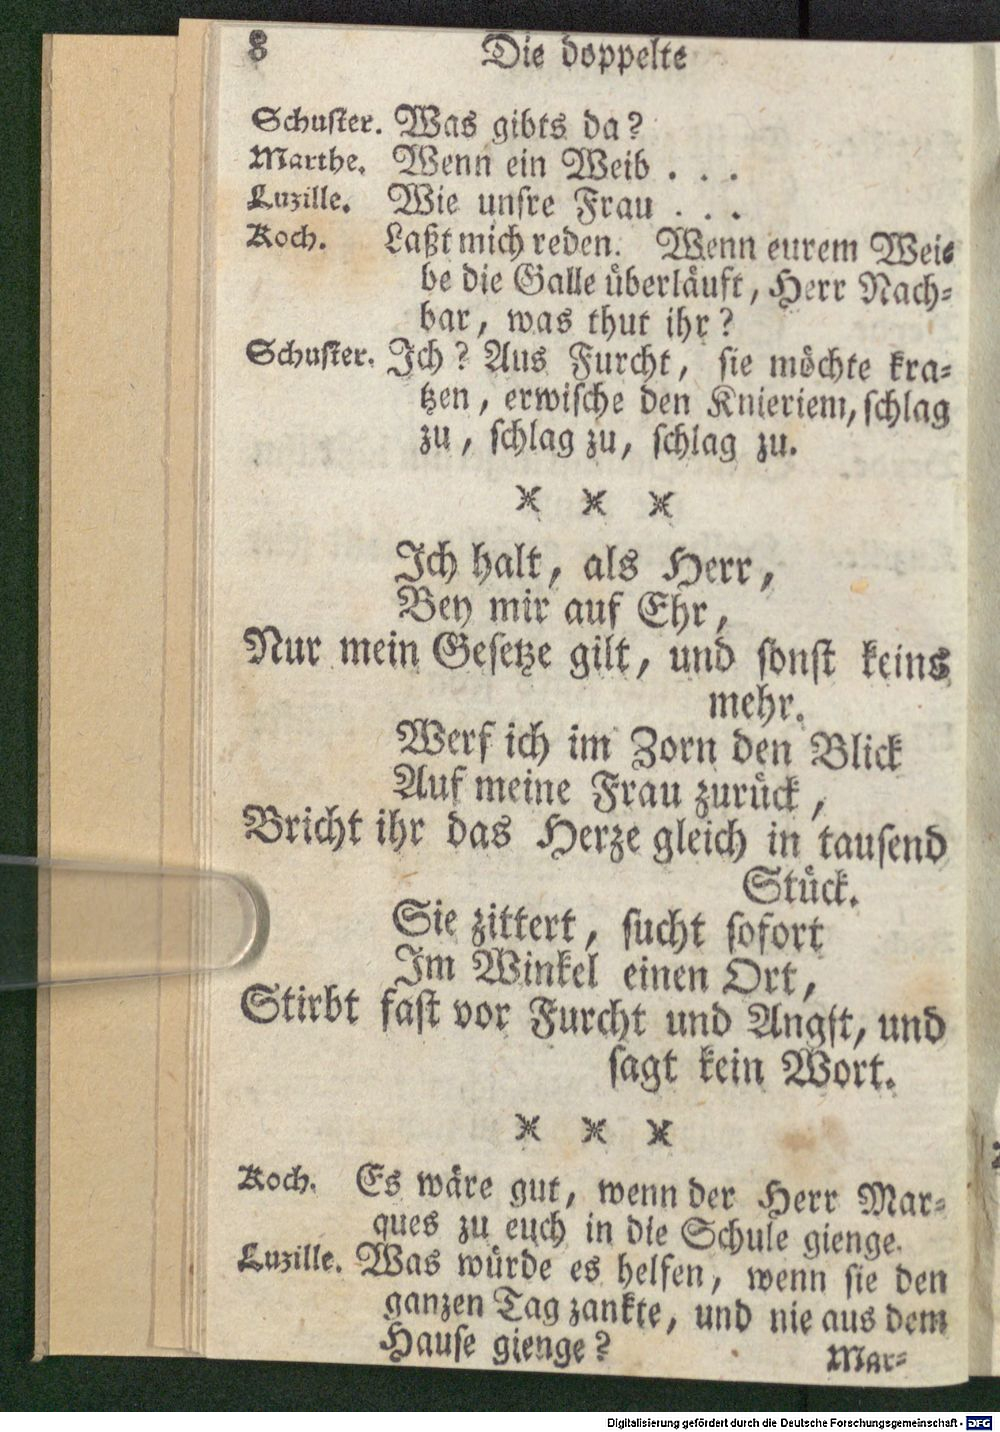 8 Die doppelte
Schuster. Was gibts da?
Marthe. Wenn ein Weib . . .
Luzille. Wie unsre Frau . . .
Koch. Laßt mich reden. Wenn eurem Wei-
be die Galle überläuft, Herr Nach-
bar, was thut ihr?
Schuster. Ich? Aus Furcht, sie möchte kra-
tzen, erwische den Knieriem, schlag
zu, schlag zu, schlag zu.
* * *
Ich halt, als Herr,
Bey mir auf Ehr,
Nur mein Gesetze gilt, und sonst keins
mehr.
Werf ich im Zorn den Blick
Auf meine Frau zurück,
Bricht ihr das Herze gleich in tausend
Stück.
Sie zittert, sucht sofort
Im Winkel einen Ort,
Stirbt fast vor Furcht und Angst, und
sagt kein Wort.
* * *
Koch. Es wäre gut, wenn der Herr Mar-
ques zu euch in die Schule gienge.
Luzille. Was würde es helfen, wenn sie den
ganzen Tag zankte, und nie aus dem
Hause gienge?
Mar-
Digitalisierung gefördert durch die Deutsche Forschungsgemeinschaft - DFG